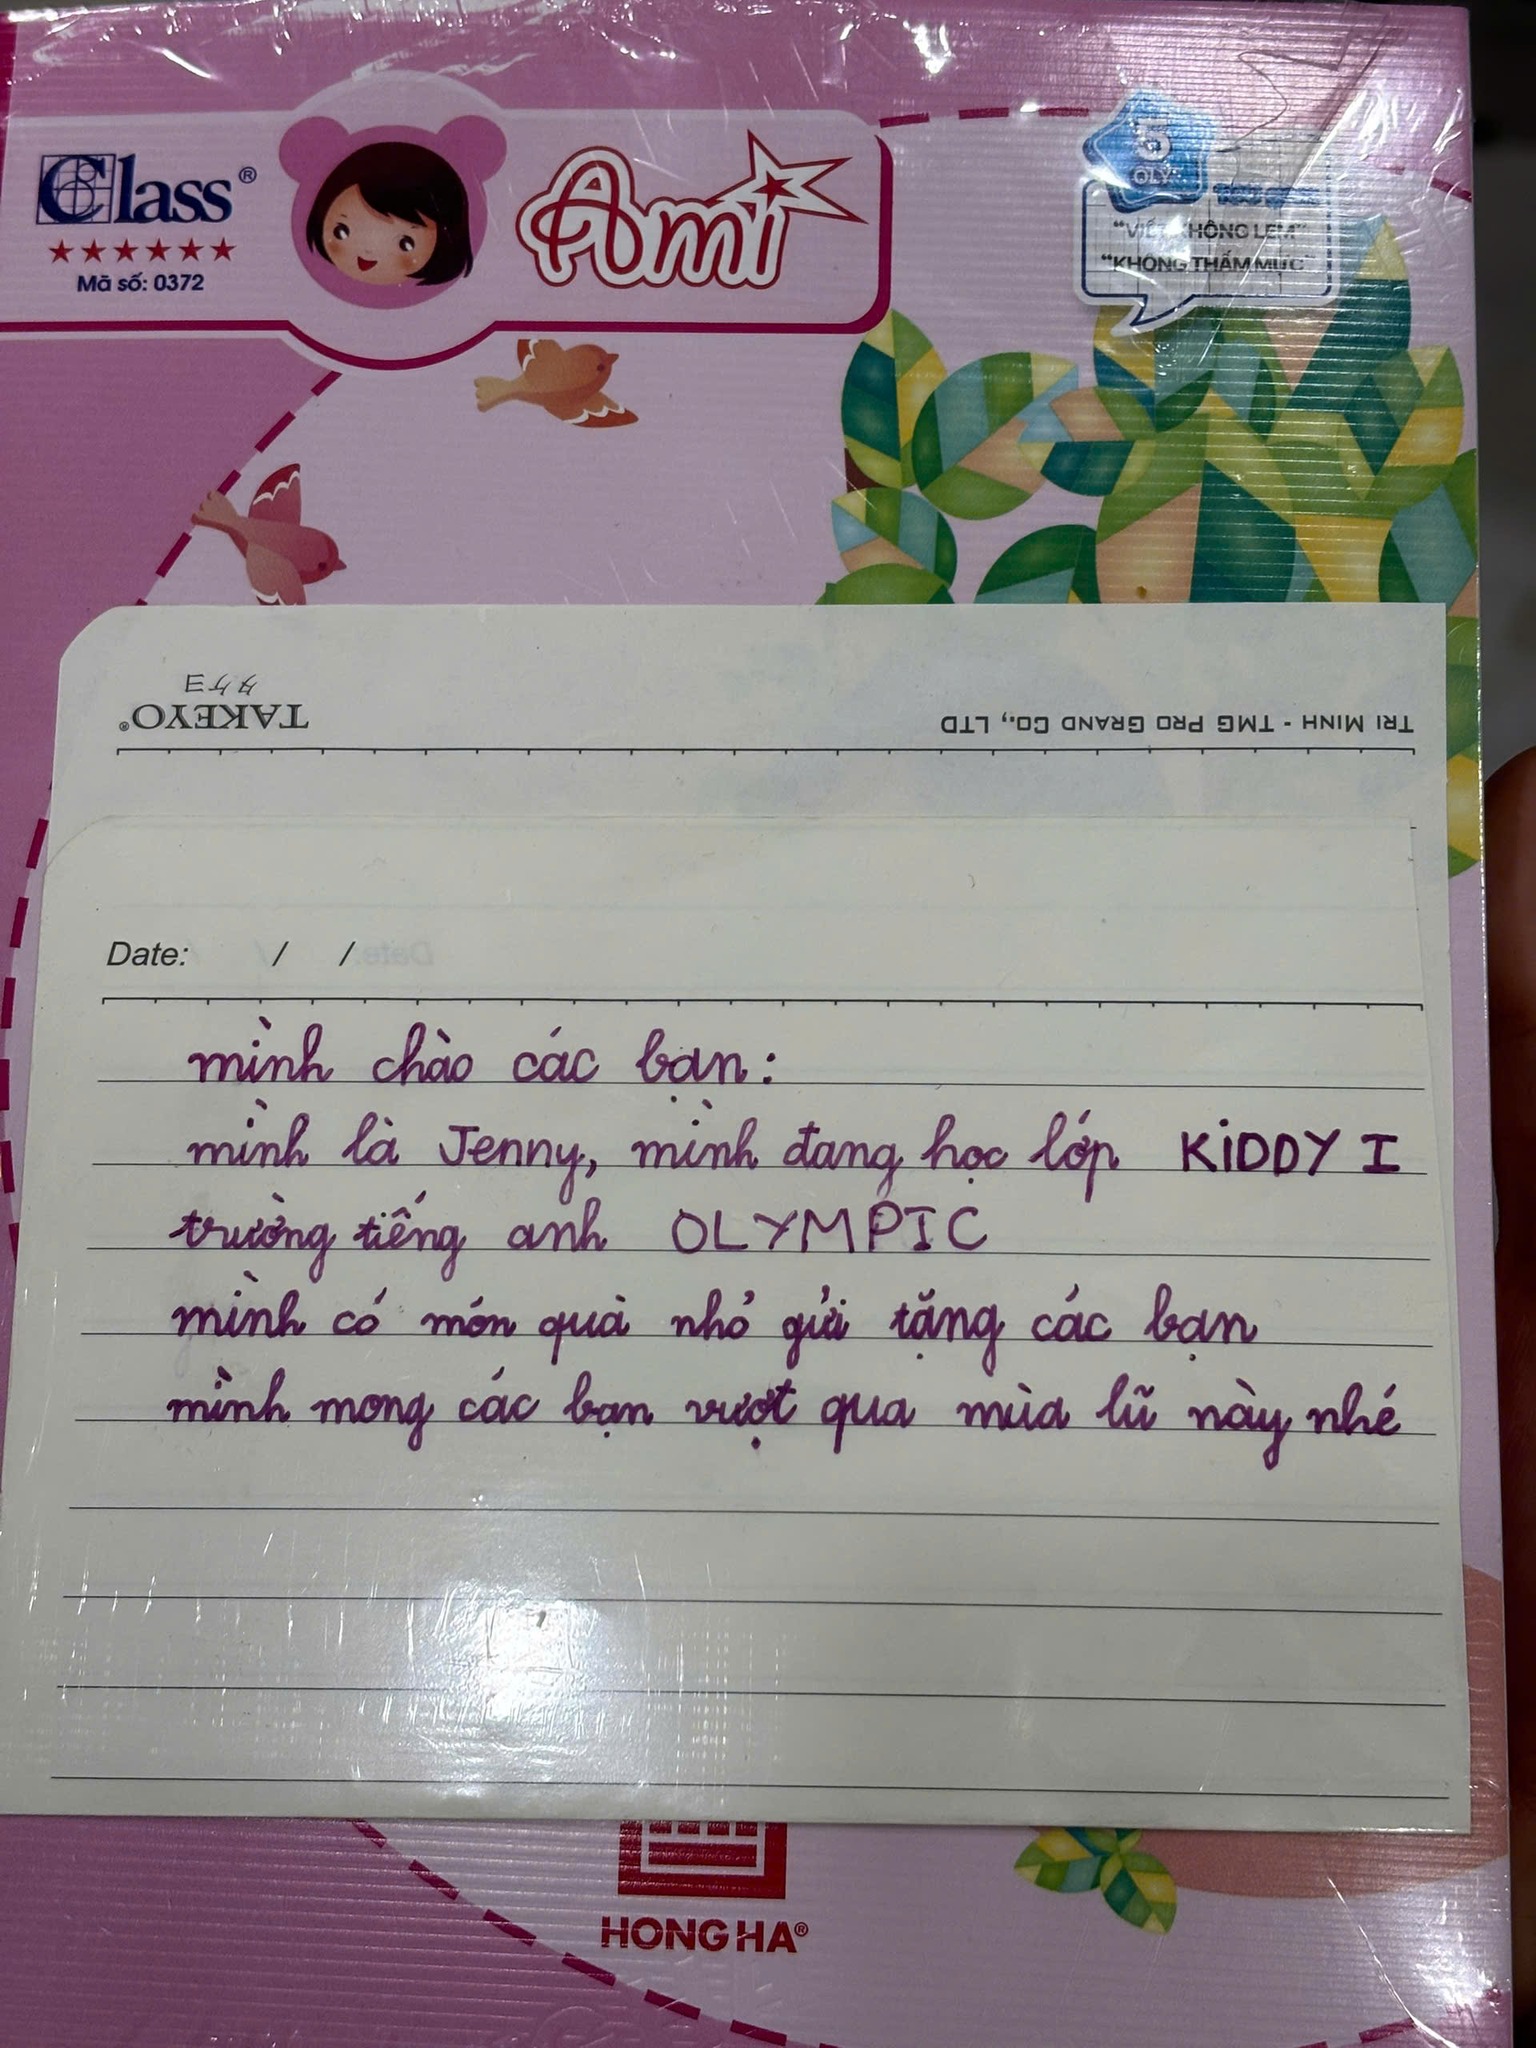 Class®
Mã số: 0372
Ami
5
OLY
"VIẾT KHÔNG LEM"
"KHÔNG THẤM MỰC"
TAKEYO®
タケヨ
TRI MINH - TMG PRO GRAND CO., LTD
Date: / /
mình chào các bạn:
mình là Jenny, mình đang học lớp KiDDY I
trường tiếng anh OLYMPIC
mình có món quà nhỏ gửi tặng các bạn
mình mong các bạn vượt qua mùa lũ này nhé
HONG HA®